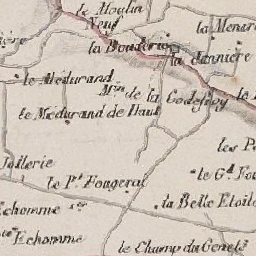 le Moulin
Neuf
la Menar
la Bouderie
la Jannière
le Medurand
Mon de la Godefroy
le Medurand de Haut
les P
Jollerie
le Gd Fou
le Pt Fougerai
la Belle Etoile
Echomme
Echomme
le Champ du Genets